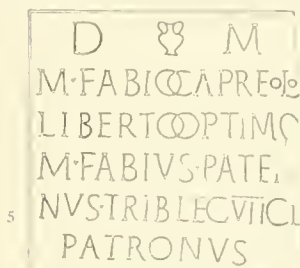 D M
M·FABIO CAPREOLO
LIBERTO OPTIMO
M·FABIVS·PATE
5 NVS·TRIB LEG VII CL
PATRONVS